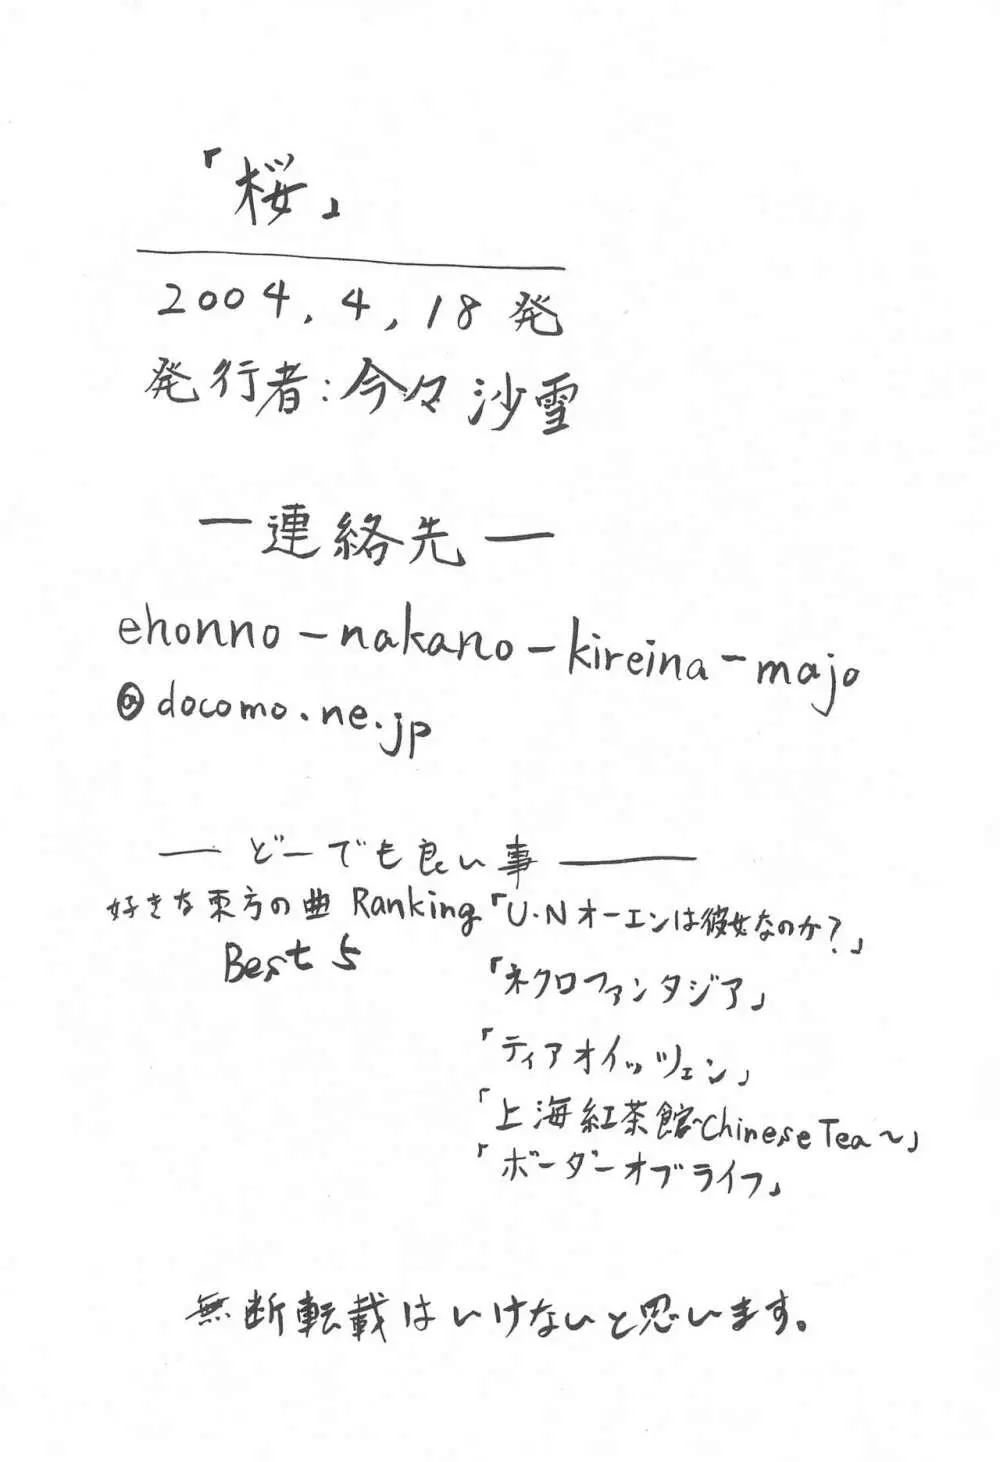 「桜」
2004, 4, 18 発
発行者:今々沙雪
―連絡先―
ehonno-nakano-kireina-majo
@docomo.ne.jp
― どーでも良い事 ―
好きな東方の曲 Ranking「U・Nオーエンは彼女なのか?」
Best 5
「ネクロファンタジア」
「ティアオイッツェン」
「上海紅茶館~Chinese Tea~」
「ボーダーオブライフ」
無断転載はいけないと思います。